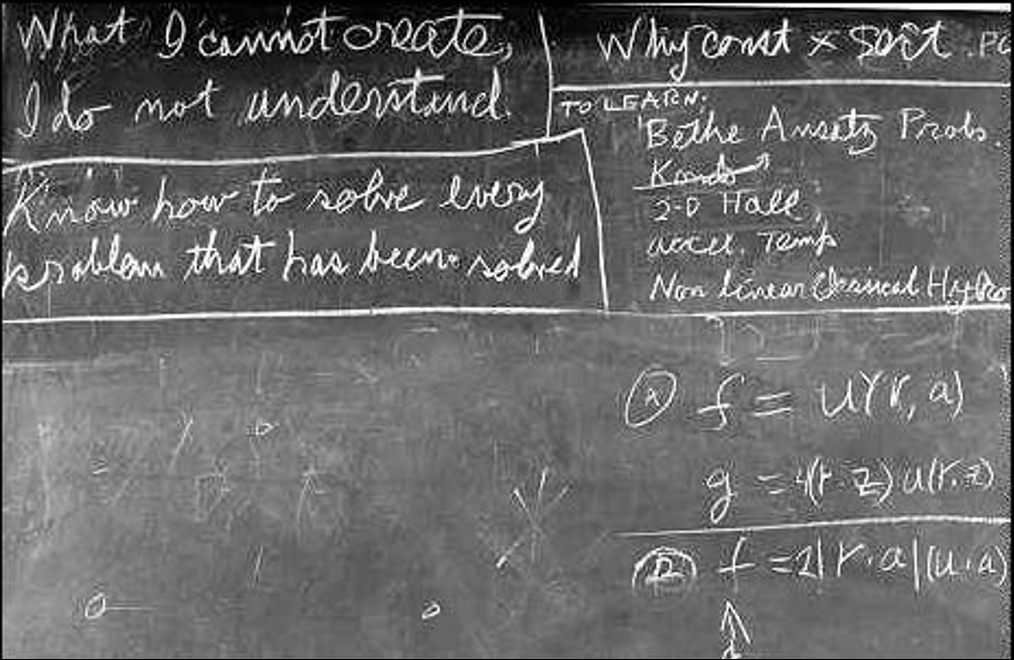 What I cannot create,
I do not understand.
Know how to solve every
problem that has been solved
Why const × sort . PO
TO LEARN:
Bethe Ansatz Probs.
Kondo
2-D Hall
accel. Temp
Non linear Classical Hydro
Ⓐ f = u(r, a)
g = 4(r·z) u(r,z)
f = 2|r·a|(u·a)